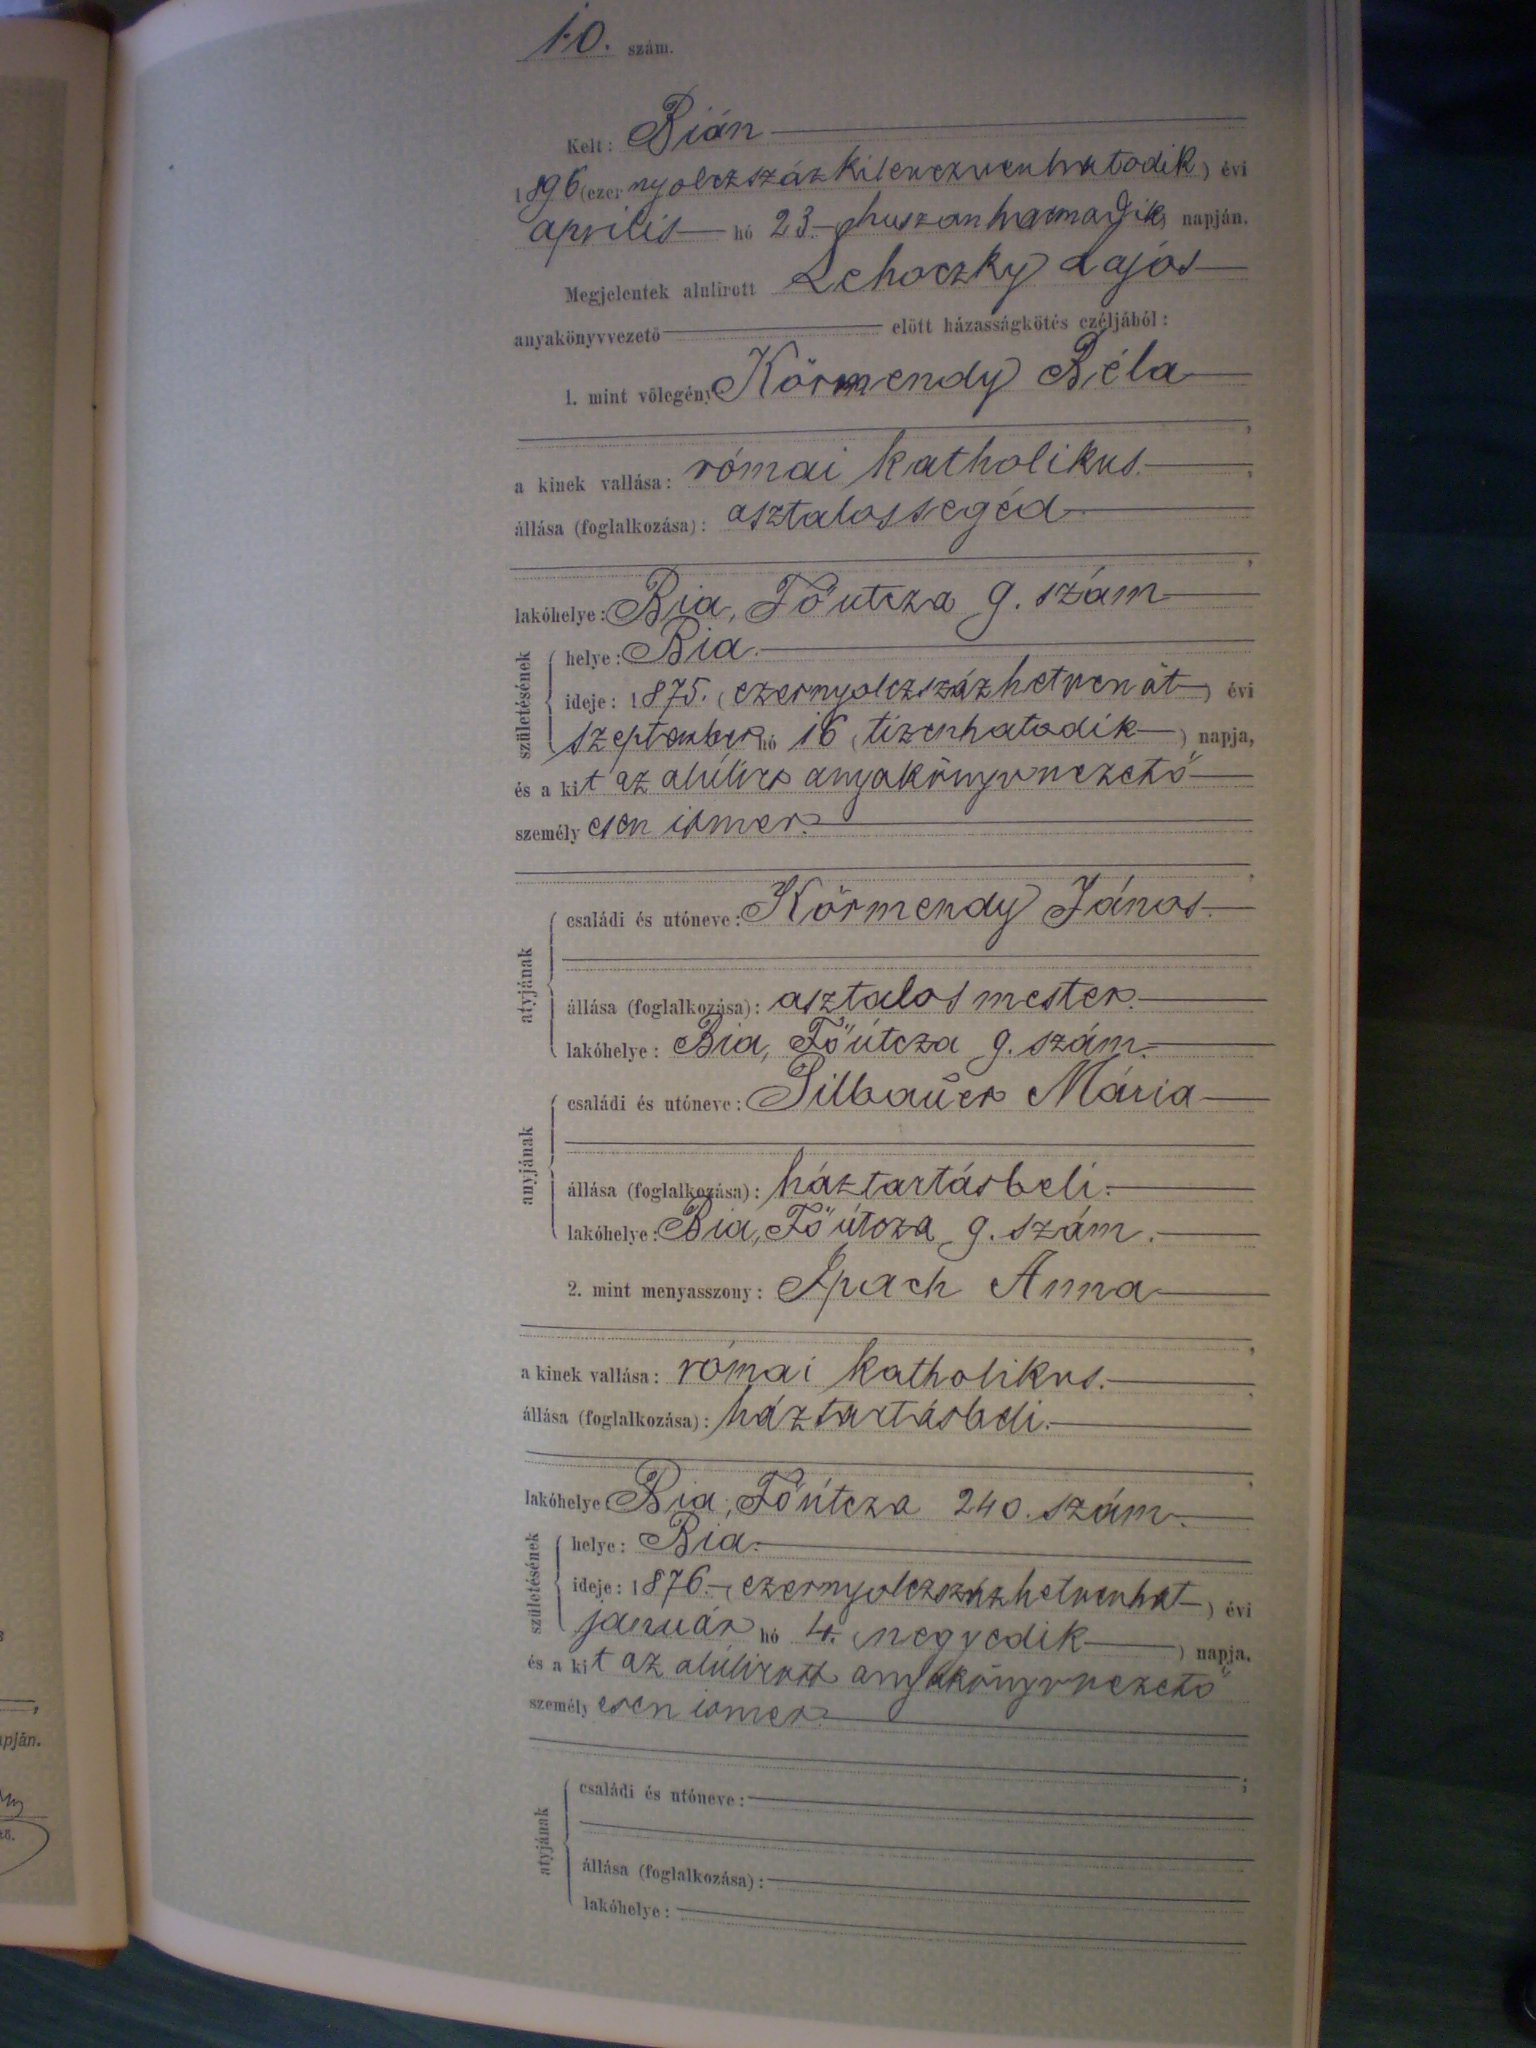 10. szám.
Kelt: Bián
1896 (ezernyolczszázkilenczvenhatodik) évi
április hó 23 (huszonharmadik) napján.
Megjelentek alulirott Lehoczky Lajos
anyakönyvvezető előtt házasságkötés czéljából:
1. mint vőlegény Körmendy Béla
,
a kinek vallása: római katholikus. ,
állása (foglalkozása): asztalossegéd
,
lakóhelye: Bia, Főutcza 9. szám
születésének
helye: Bia.
ideje: 1875. (ezernyolczszázhetvenöt) évi
szeptember hó 16 (tizenhatodik) napja,
és a kit az alúlirt anyakönyvvezető
személyesen ismer.
,
atyjának
családi és utóneve: Körmendy János.
állása (foglalkozása): asztalos mester.
lakóhelye: Bia, Főútcza 9. szám.
anyjának
családi és utóneve: Silbauer Mária
állása (foglalkozása): háztartásbeli.
lakóhelye: Bia, Főútcza 9. szám.
2. mint menyasszony: Ipach Anna
,
a kinek vallása: római katholikus. ,
állása (foglalkozása): háztartásbeli.
,
lakóhelye: Bia, Főútcza 240. szám.
születésének
helye: Bia.
ideje: 1876. (ezernyolczszázhetvenhat) évi
január hó 4. (negyedik) napja,
és a kit az alúlirott anyakönyvvezető
személyesen ismer.
;
atyjának
családi és utóneve:
állása (foglalkozása):
lakóhelye: